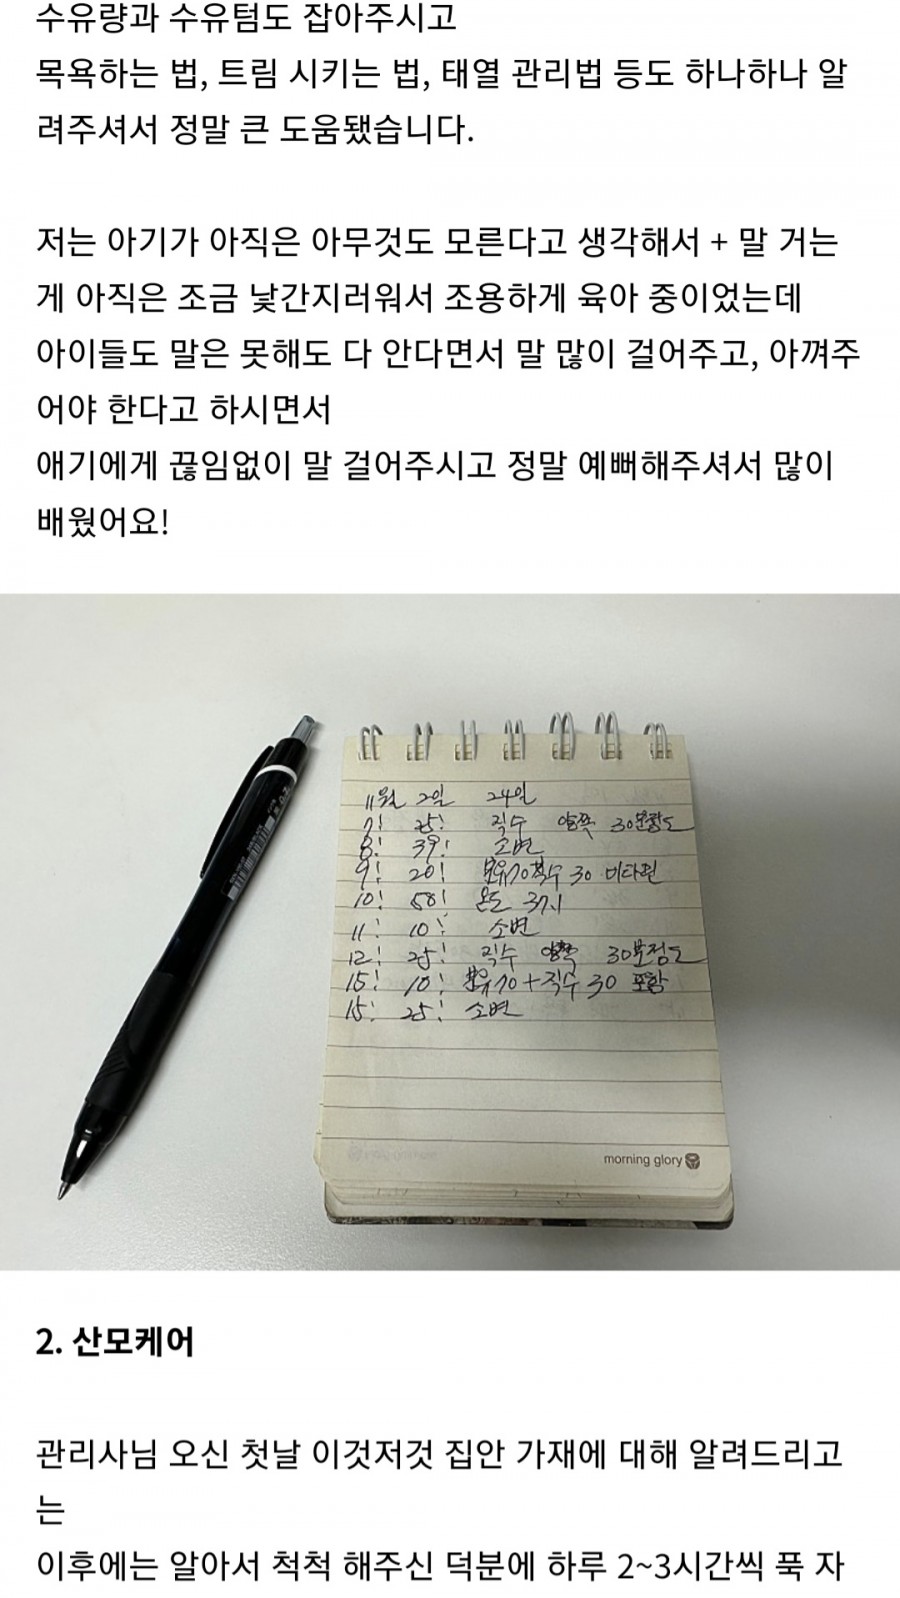 수유량과 수유텀도 잡아주시고
목욕하는 법, 트림 시키는 법, 태열 관리법 등도 하나하나 알
려주셔서 정말 큰 도움됐습니다.
저는 아기가 아직은 아무것도 모른다고 생각해서 + 말 거는
게 아직은 조금 낯간지러워서 조용하게 육아 중이었는데
아이들도 말은 못해도 다 안다면서 말 많이 걸어주고, 아껴주
어야 한다고 하시면서
애기에게 끊임없이 말 걸어주시고 정말 예뻐해주셔서 많이
배웠어요!
11월 2일 24일
7! 25! 직수 양쪽 30분정도
8! 39! 소변
9! 20! 직수 30 비타민
10! 50! 온도 37.1
11! 10! 소변
12! 25! 직수 양쪽 30분정도
15! 10! 70+직수 30 포함
15! 25! 소변
morning glory
2. 산모케어
관리사님 오신 첫날 이것저것 집안 가재에 대해 알려드리고
는
이후에는 알아서 척척 해주신 덕분에 하루 2~3시간씩 푹 자